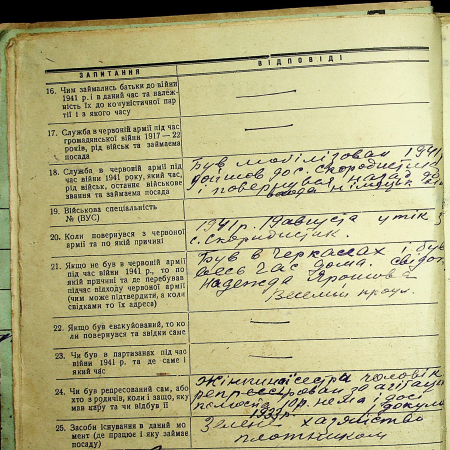 ЗАПИТАННЯ
ВІДПОВІДІ
16. Чим займались батьки до війни
1941 р. і в даний час та належ-
ність їх до комуністичної пар-
тії і з якого часу
17. Служба в червоній армії під час
громадянської війни 1917 — 22
років, рід військ та займаєма
посада
18. Служба в червоній армії під
час війни 1941 року, який час,
рід військ, останнє військове
звання та займаєма посада
Був мобілізован 1941
дойшов до с.
і повернувся назад до
19. Військова спеціальність
№ (ВУС)
20. Коли повернувся з червоної
армії та по якій причині
1941 р. 19 августа утік з
с.
21. Якщо не був в червоній армії
під час війни 1941 р., то по
якій причині та де перебував
під час відходу червоної армії
(чим може підтвердити, а коли
свідками то їх адреса)
Був в Черкассах і був
весь час дома.
Надежда
22. Якщо був евакуйований, то ко-
ли повернувся та звідки саме
23. Чи був в партизанах під час
війни 1941 р. та де саме і
який час
24. Чи був репресований сам, або
хто з родичів, коли і защо, яку
мав кару та чи відбув її
сестри чоловік
репрессірован за агітацію
10 р. нема і досі
1937 р.
25. Засоби існування в даний мо-
мент (де працює і яку займає
посаду)
Зелен. хазяйство
плотником